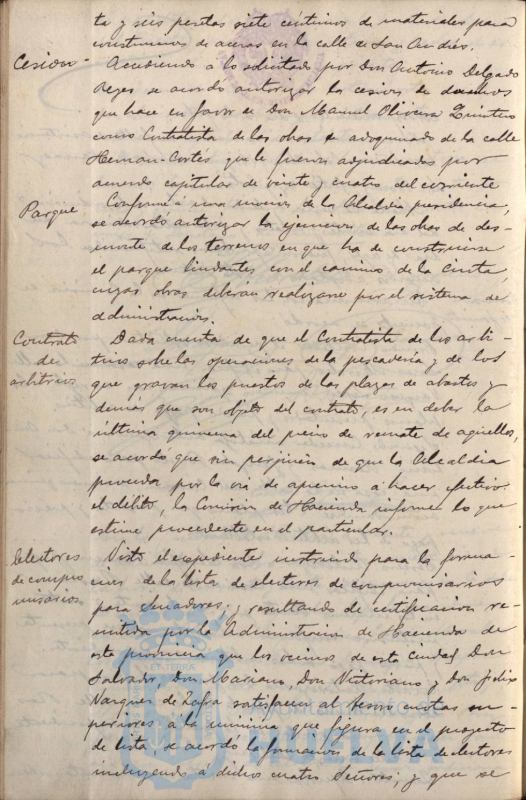 ta y seis pesetas siete céntimos de materiales para
construcciones de aceras en la calle de San Andrés.
Cesion -
Accediendo á lo solicitado por Don Antonio Delgado
Reyes se acordó autorizar la cesion de derechos
que hace en favor de Don Manuel Olivera Quintero
como Contratista de las obras de adoquinado de la calle
Hernan-Cortés que le fueron adjudicadas por
acuerdo capitular de veinte y cuatro del corriente
Parque
Conforme á una mocion de la Alcaldia presidencia,
se acordó autorizar la ejecucion de las obras de des-
monte de los terrenos en que ha de construirse
el parque lindantes con el camino de la Cinta,
cuyas obras deberán realizarse por el sistema de
administracion.
Contrato
de
arbitrios
Dada cuenta de que el Contratista de los arbi-
trios sobre las operaciones de la pescadería y de los
que gravan los puestos de las plazas de abastos y
demás que son objeto del contrato, es en deber la
última quincena del precio de remate de aquellos,
se acordó que sin perjuicio de que la Alcaldia
proceda por la via de apremio á hacer efectivo
el débito, la Comision de Hacienda informe lo que
estime procedente en el particular.
Electores
de compro
misarios
Visto el expediente instruido para la forma-
cion de la lista de electores de compromisarios
para Senadores; y resultando de certificacion re-
mitida por la Administracion de Hacienda de
esta provincia que los vecinos de esta Ciudad Don
Salvador, Don Mariano, Don Victoriano y Don Felix
Vazquez de Zafra satisfacen al tesoro cuotas su-
periores á la minima que figura en el proyecto
de lista, se acordó la formacion de la lista de electores
incluyendo á dichos cuatro Señores; y que se
ET TERRÆ
HUELVA